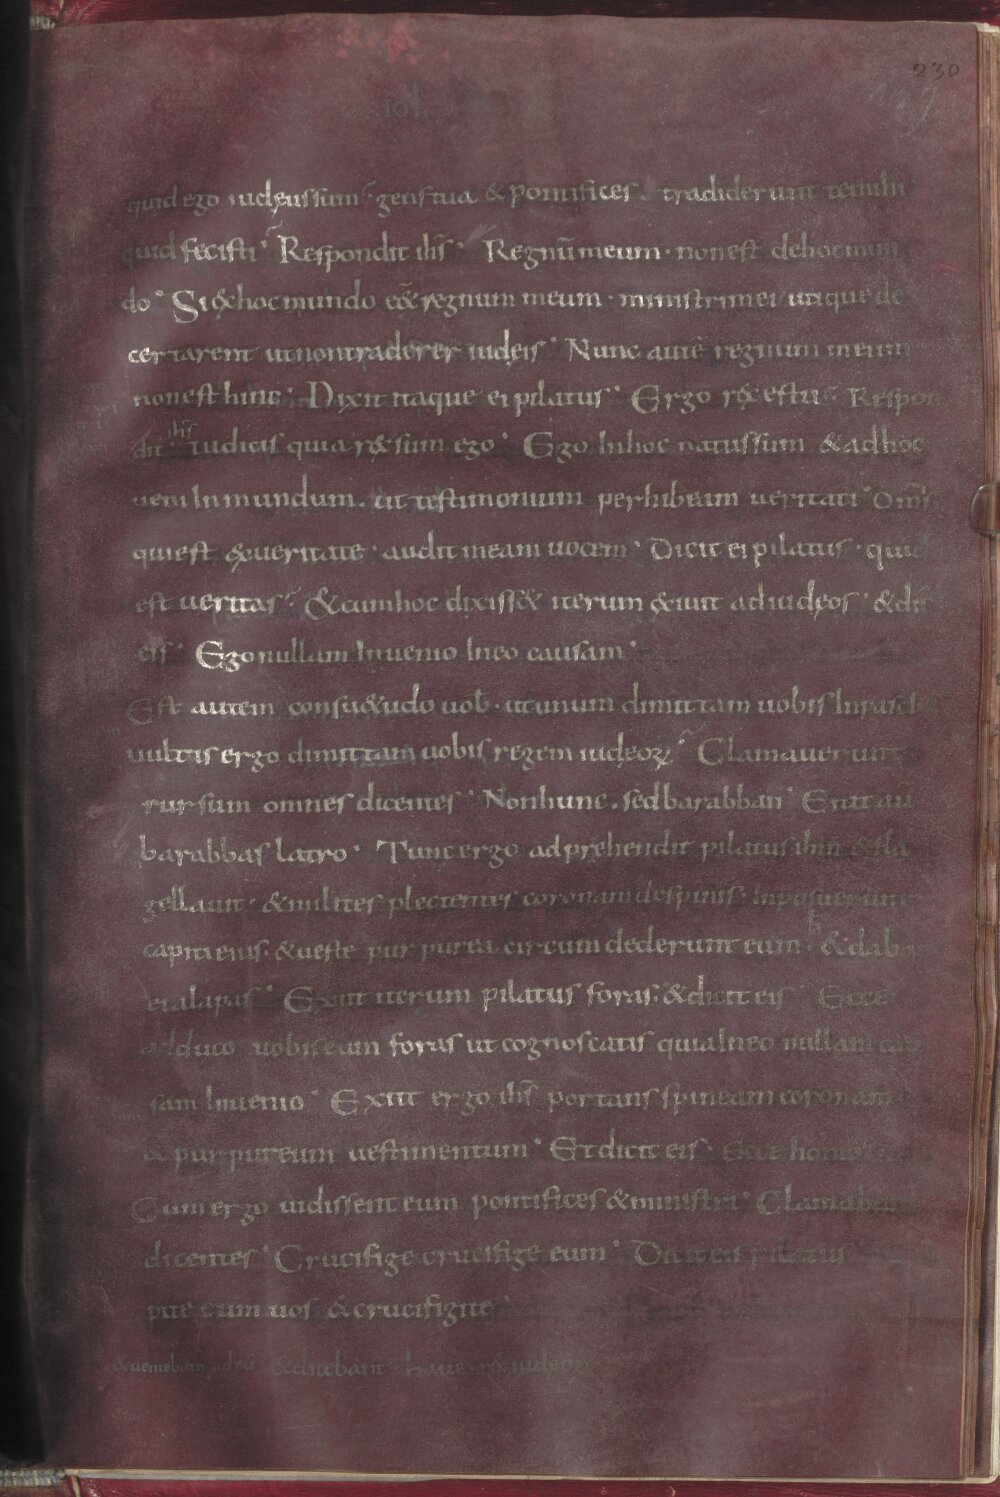 230
IOH
quid ego iudęus sum? gens tua & pontifices tradiderunt te mihi
quid fecisti? Respondit ihs̄. Regnū meum. non est de hoc mun
do. Si ex hoc mundo eēt regnum meum. ministri mei utique de
certarent ut non traderer iudęis. Nunc autē regnum meum
non est hinc. Dixit itaque ei pilatus. Ergo rex es tu? Respon
dit ihs̄ tu dicis quia rex sum ego. Ego in hoc natus sum & ad hoc
veni in mundum. ut testimonium perhibeam veritati. Omīs
qui est ex veritate. audit meam vocem. Dicit ei pilatus. quid
est veritas? & cum hoc dixiss& iterum exivit ad iudęos. & dic̄
eis. Ego nullam invenio in eo causam.
Est autem consuetudo vob. ut unum dimittam vobis in pascha
vultis ergo dimittam vobis regem iudęoꝝ? Clamaverunt
rursum omnes dicentes. Non hunc. sed barabban. Erat aū
barabbas latro. Tunc ergo adprehendit pilatus ihm̄ & fla
gellavit. & milites plectentes coronam de spinis. inposuerunt
capiti eius. & veste purpurea circumdederunt eum. & dabant
ei alapas. Exiit iterum pilatus foras. & dicit eis. Ecce
adduco vobis eum foras ut cognoscatis quia in eo nullam cau
sam invenio. Exiit ergo ihs̄ portans spineam coronam
& purpureum vestimentum. Et dicit eis. Ecce homo
Cum ergo vidissent eum pontifices & ministri. Clamabant
dicentes. Crucifige crucifige eum. Dicit eis pilatus
pite eum vos & crucifigite
& veniebant ad eū & dicebant. have rex iudeoꝝ